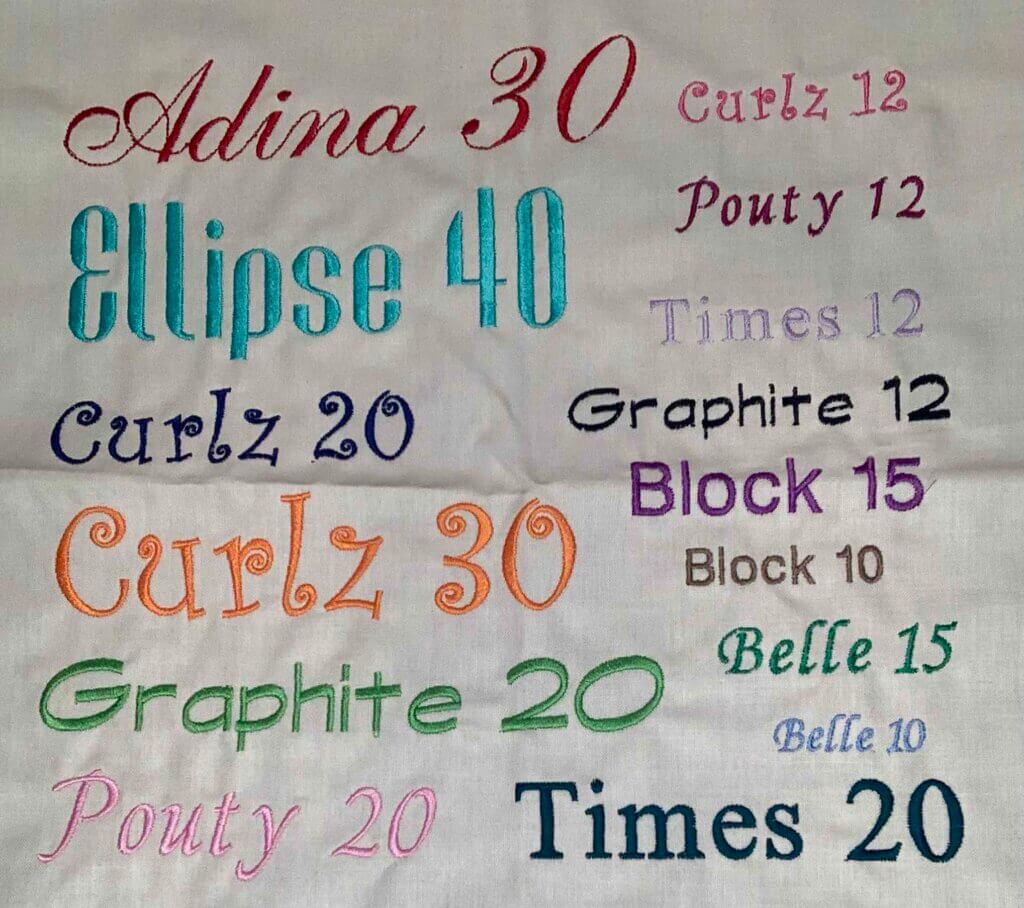 Adina 30
Curlz 12
Pouty 12
Ellipse 40
Times 12
Curlz 20
Graphite 12
Block 15
Curlz 30
Block 10
Belle 15
Graphite 20
Belle 10
Pouty 20
Times 20